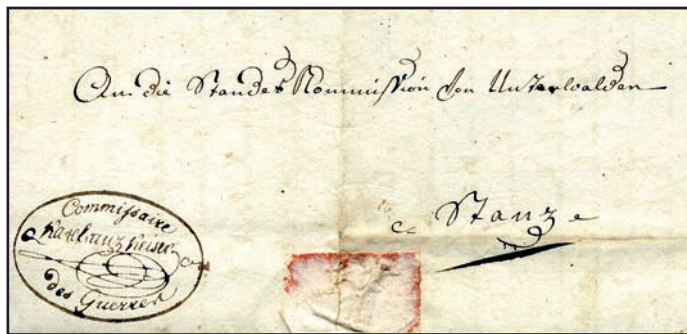 An die Standes Kommission von Unterwalden
Stanz
Commissaire
Karl Franz Keiser
des Guerres